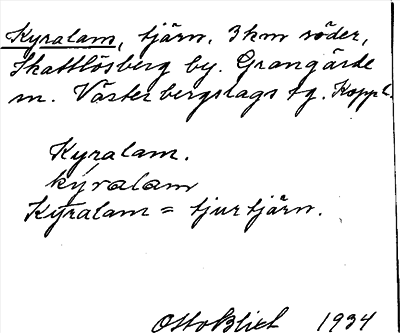 Kyralam, tjärn, 3 km söder,
Skattlösberg by. Grangärde
sn. Västerbergslags tg. Koppb.
Kyralam.
kýralam
Kyralam = tjurtjärn.
Otto Blixt 1934